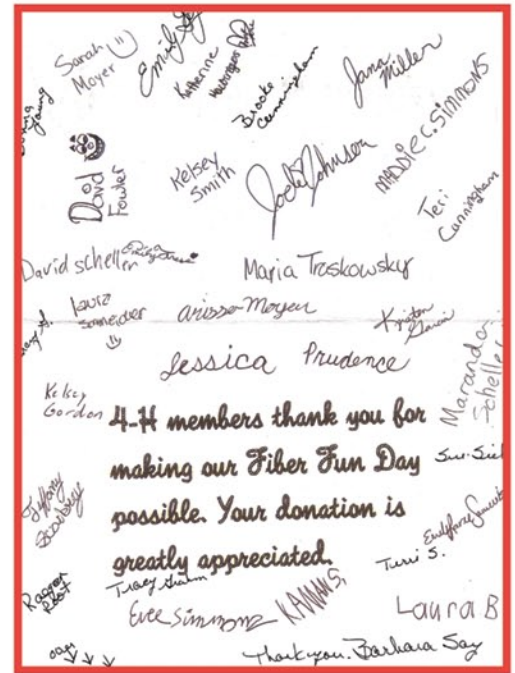 Sarah
Moyer
Katherine
Brooke
Cunningham
Jana
Miller
Young
David
Fowler
Kelsey
Smith
Jodi Johnson
MADDIE C. SIMMONS
Teri
Cunningham
David scheller
Maria Troskowsky
Laura
Schneider
Kristen
Garcia
Jessica Prudence
Maranda
Scheller
Kelsey
Gordon
4-H members thank you for
making our Fiber Fun Day
possible. Your donation is
greatly appreciated.
Tiffany
Terri S.
Tracy
Evee Simmons
Laura B
Thank you. Barbara Say